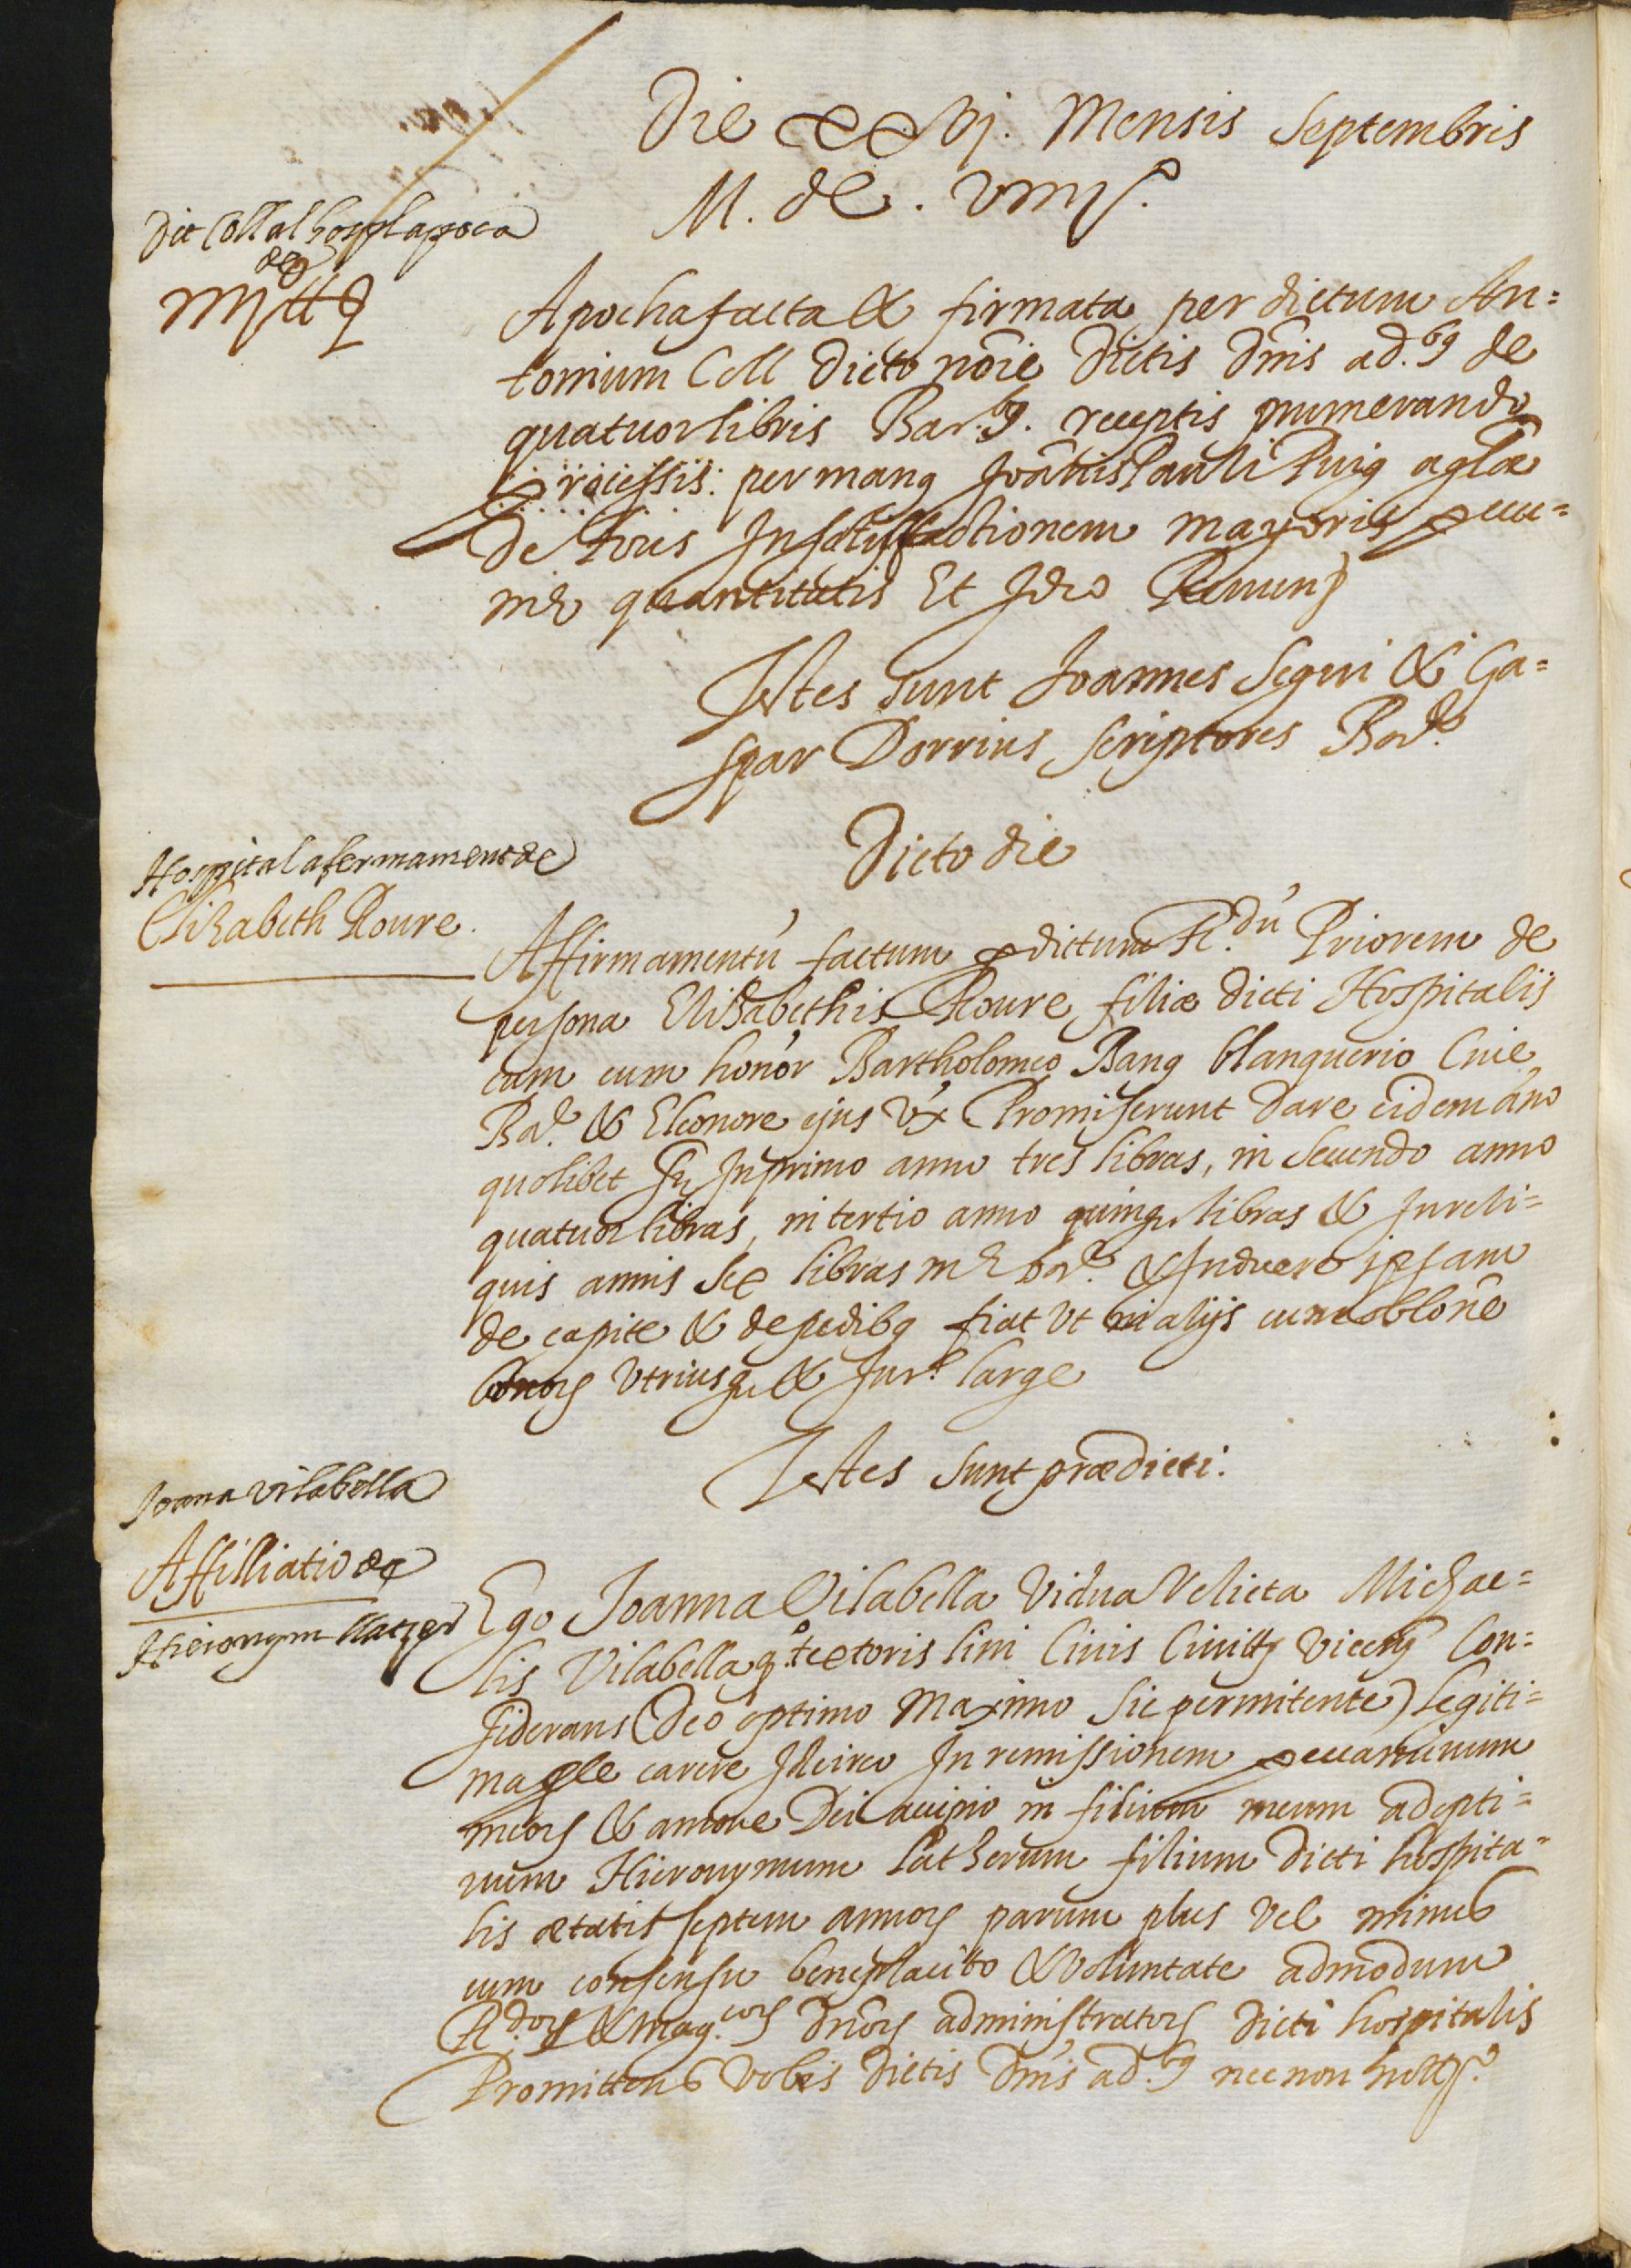 Die xxvj. Mensis Septembris
M. dc. viiij.º
Dit Coll al hospl apoca
de
iiij ll
Apocha facta & firmata per dictum An=
tonium Coll dicto nõie dictis dñis ad.bꝯ de
quatuor libris Bar.bꝯ. receptis numerando
per manꝯ Joãnis Pauli Puig
de foris In satisfactionem mayoris pecu=
nie quantitatis Et Ideo Renunꝯ
Testes sunt Joannes Segui & Ga=
spar Dorrius scriptores Bar.
Dicto die
Hospital afermament de
Elizabeth Roure.
Affirmamentũ factum p dictum R.dũ Priorem de
persona Elisabethis Roure filiæ dicti Hospitalis
cum honor Bartholomeo Banꝯ blanquerio Ciue
Bar. & Eleonore ejus vx Promiserunt dare eidem año
quolibet In primo anno tres libras, in secundo anno
quatuor libras, in tertio anno quinqꝫ libras & In reli=
quis annis sex libras & Induere ipsam
de capite & de pedibꝯ fiat vt in alijs cum obloñe
bonoꝝ vtriusqꝫ & Jur.t large
Testes sunt prædicti.
Joana Vilabella
Affilliatio de
Hieronym llatzer
Ego Joanna Vilabella Vidua relicta Michae=
lis Vilabella qº textoris lini Ciuis Ciuittꝭ Vicen Con=
siderans (Deo optimo Maximo sic permitente) legiti=
ma ple carere Idcirco In remissionem peccaminum
meoꝝ & amore Dei accipio in filium meum adopti=
uum Hieronymum Latzerum filium dicti hospita=
lis ætatis septem annoꝝ parum plus vel minus
cum consensu beneplacito & voluntate admodum
R.doꝝ & mag.coꝝ dñoꝝ administratoꝝ dicti hospitalis
Promittens vobis dictis dñis ad.bꝯ nec non